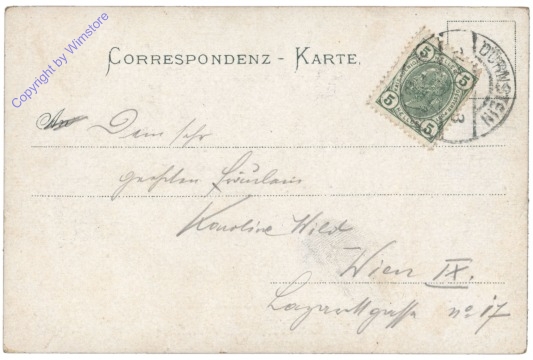 Copyright by Wimstore
CORRESPONDENZ - KARTE.
5 5 5 5
DÜRNSTEIN
An Dem sehr
geehrten Fräulein
Karoline Wild
Wien IX.
Lazarettgasse No 17